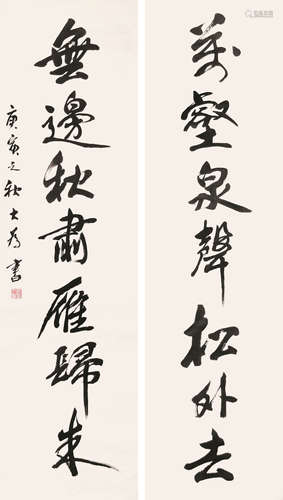 萬壑泉聲松外去
無邊秋肅雁歸来
庚寅之秋大为書